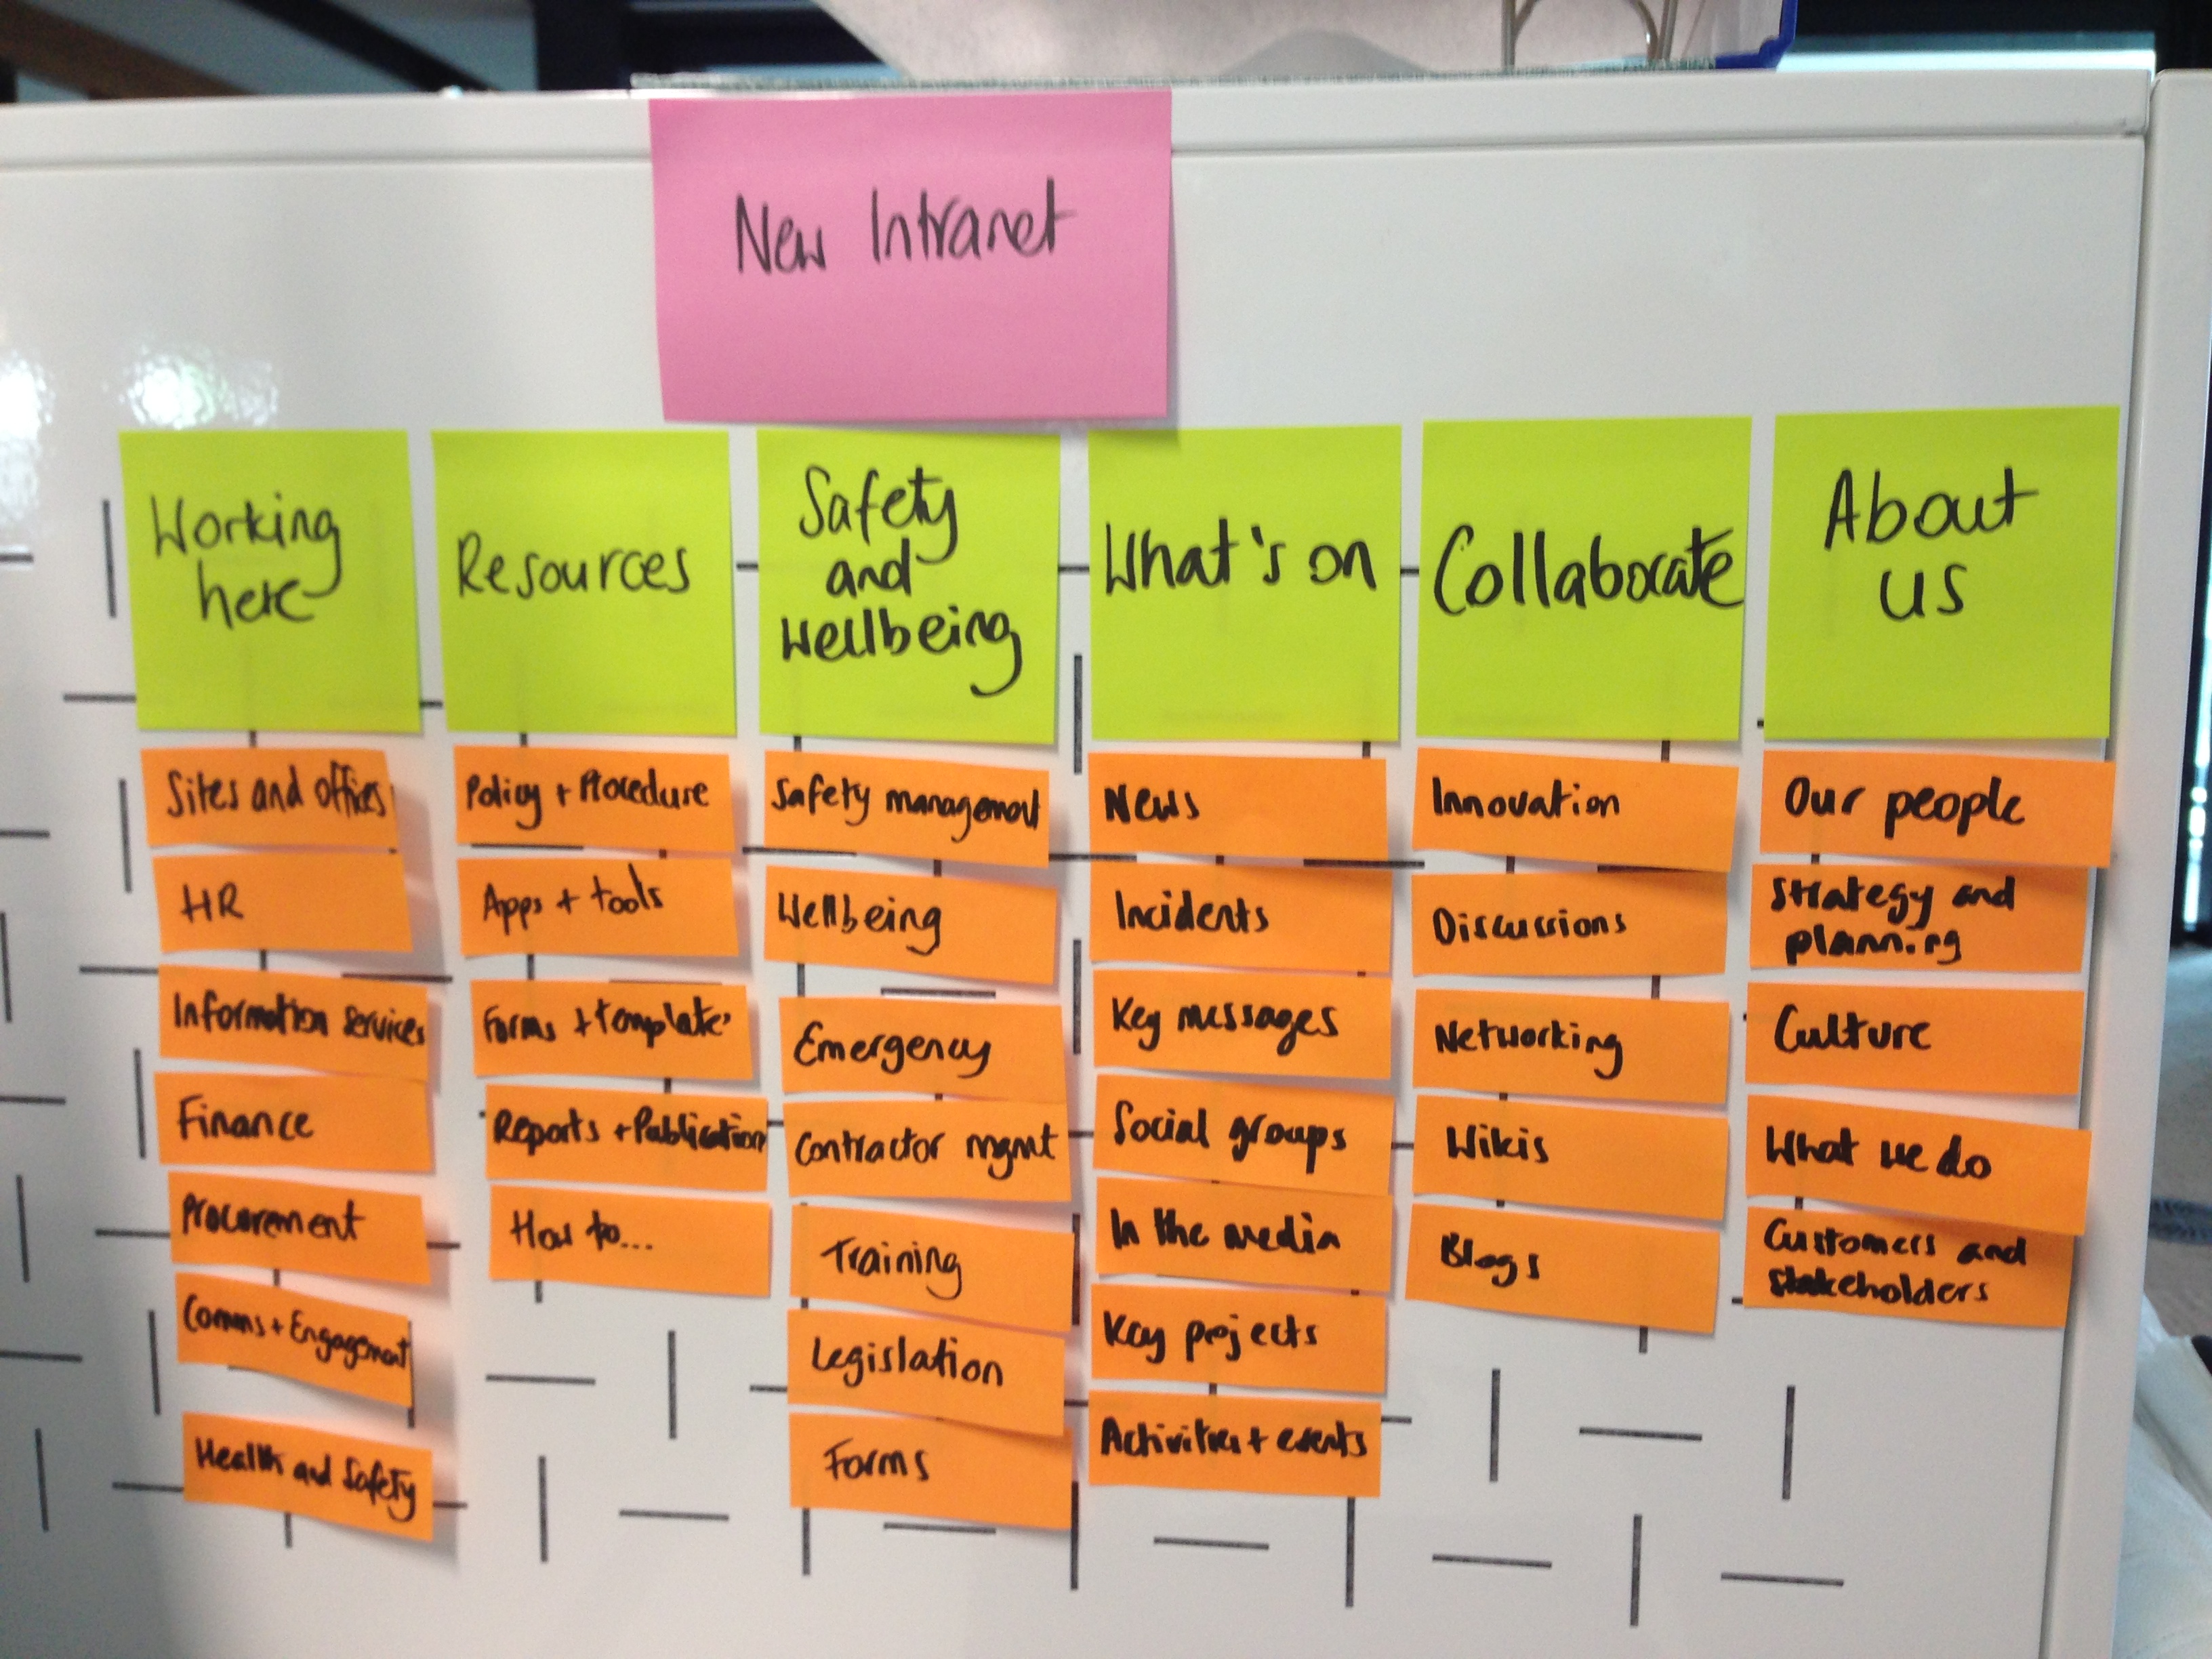 New Intranet
Working
here
Sites and offices
HR
Information Services
Finance
Procurement
Comms + Engagement
Health and Safety
Resources
Policy + Procedure
Apps + tools
Forms + templates
Reports + Publication
How to...
Safety
and
Wellbeing
Safety management
Wellbeing
Emergency
Contractor mgmt
Training
Legislation
Forms
What's on
News
Incidents
Key messages
Social groups
In the media
Key projects
Activities + events
Collaborate
Innovation
Discussions
Networking
Wikis
Blogs
About
us
Our people
Strategy and
planning
Culture
What we do
Customers and
stakeholders